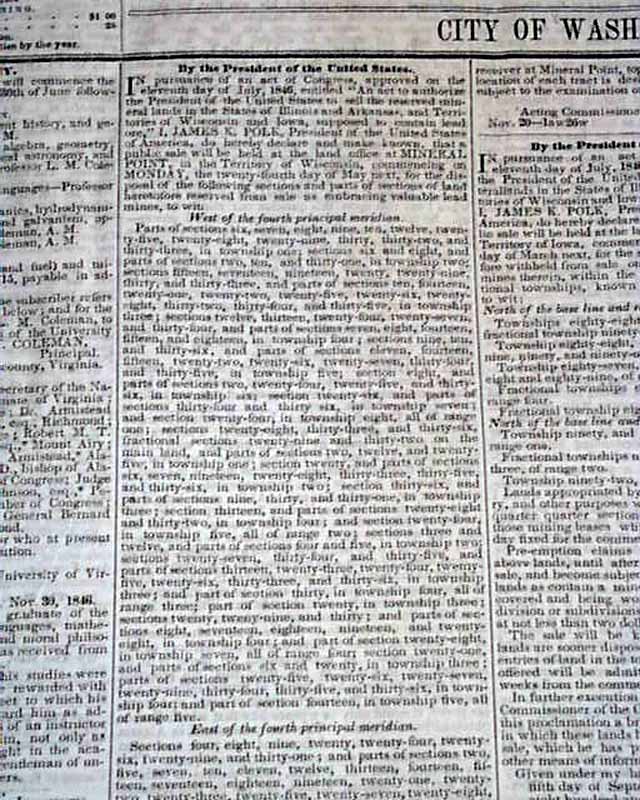 $1 00
25
CITY OF WASH
ties by the year.
will commence the
30th of June follow-
nt history, and ge-
algebra, geometry,
cal astronomy, and
rofessor L. M. Cole
nguages—Professor
anics, hydrodynam-
nd galvanism, op-
leman, A. M.
leman, A. M.
and fuel) and tui-
15, payable in ad-
he subscriber refers
below; and for the
M. Coleman, to
of the University
COLEMAN,
Principal.
county, Virginia.
ecretary of the Na-
Robert M. T.
bishop of Ala-
of Congress; Judge
General Bernard
or who at present
University of Vir-
Nov. 30, 1846.
graduate of the
nguages, mathe-
nd moral philoso-
as received from
his studies were
rewarded with
of an instructor
not only as
By the President of the United States.
IN pursuance of an act of Congress, approved on the
eleventh day of July, 1846, entitled "An act to authorize
the President of the United States to sell the reserved min-
eral lands in the States of Illinois and Arkansas, and Terri-
tories of Wisconsin and Iowa, supposed to contain lead
ore," I, JAMES K. POLK, President of the United States
of America, do hereby declare and make known, that a
public sale will be held at the land office at MINERAL
POINT, in the Territory of Wisconsin, commencing on
MONDAY, the twenty-fourth day of May next, for the dis-
posal of the following sections and parts of sections of land
heretofore reserved from sale as embracing valuable lead
mines, to wit:
West of the fourth principal meridian.
Parts of sections six, seven, eight, nine, ten, twelve, twen-
ty-five, twenty-eight, twenty-nine, thirty, thirty-two, and
thirty-three, in township one; sections six and eight, and
parts of sections two, ten, and thirty-one, in township two;
sections fifteen, seventeen, nineteen, twenty, twenty-nine,
thirty, and thirty-three, and parts of sections ten, fourteen,
twenty-one, twenty-two, twenty-five, twenty-six, twenty-
eight, thirty-two, thirty-four, and thirty-five, in township
three; sections twelve, thirteen, twenty-four, twenty-seven,
and thirty-four, and parts of sections seven, eight, fourteen,
fifteen, and eighteen, in township four; sections nine, ten
and thirty-six, and parts of sections eleven, fourteen,
fifteen, twenty-two, twenty-six, twenty-seven, thirty-four,
and thirty-five, in township five; section eight, and
parts of sections two, twenty-four, twenty-five, and thirty-
six, in township six; section twenty-six, and parts of
sections thirty-four and thirty six, in township seven;
and section twenty-four, in township eight, all of range
one; sections twenty-eight, thirty-three, and thirty-six,
fractional sections twenty-nine and thirty-two on the
main land, and parts of sections two, twelve, and twenty-
five, in township one; section twenty, and parts of sections
six, seven, nineteen, twenty-eight, thirty-three, thirty-five,
and thirty-six, in township two; section thirty-six, and
parts of sections nine, thirty, and thirty-one, in township
three; section thirteen, and parts of sections twenty-eight
and thirty-two, in township four; and section twenty-four,
in township five, all of range two; sections three and
twelve, and parts of sections four and five, in township two;
sections twenty-seven, thirty-four, and thirty-five, and
parts of sections thirteen, twenty-three, twenty-four, twenty-
five, twenty-six, thirty-three, and thirty-six, in township
three; and part of section thirty, in township four, all of
range three; part of section twenty, in township three;
sections twenty, twenty-nine, and thirty; and parts of sec-
tions eight, seventeen, eighteen, nineteen, and twenty-
eight, in township four; and part of section twenty-eight,
in township seven, all of range four; section twenty-one,
and parts of sections six and twenty, in township three;
parts of sections twenty-five, twenty-six, twenty-seven,
twenty-nine, thirty-four, thirty-five, and thirty-six, in town-
ship four; and part of section fourteen, in township five, all
of range five.
East of the fourth principal meridian.
Sections four, eight, nine, twenty, twenty-four, twenty-
six, twenty-nine, and thirty-one; and parts of sections two,
five, seven, ten, eleven, twelve, thirteen, fourteen, fif-
teen, seventeen, eighteen, nineteen, twenty-one, twenty-
two, twenty-three, twenty-five, twenty-seven, twenty-eight,
receiver at Mineral Point, to
location of each tract is des
subject to the examination o
Acting Commissione
Nov. 20—law26w
By the President
IN pursuance of an act
eleventh day of July, 184
the President of the United
teral lands in the States of I
tories of Wisconsin and Iowa
I, JAMES K. POLK, Pres
America, do hereby declare
lic sale will be held at the la
Territory of Iowa, comme
day of March next, for the
fore withheld from sale
mines therein, within the
tional townships, known
to wit:
North of the base line and
Townships eighty-eight
fractional township
Township eighty-eight,
nine, ninety, and ninety-
Township eighty-seven,
eight and eighty-nine, of
Fractional townships
range four.
Fractional township eig
North of the base line and
Township ninety, and
range one.
Fractional townships
three, of range two.
Township ninety-two,
Lands appropriated by
ry, and other purposes
quarter quarter section
those mining leases wh
day fixed for the comm
Pre-emption claims
above lands, until after
sale, and become subject
lands as contain a min
covered and being wo
division or subdivision
at not less than two dol
The sale will be
lands are sooner dispos
entries of land in the
offered will be admit
weeks from the comm
In further execution
Commissioner of the
this proclamation a br
in which these lands
sale, which he has
other means of inform
Given under my
fifth day of Sep